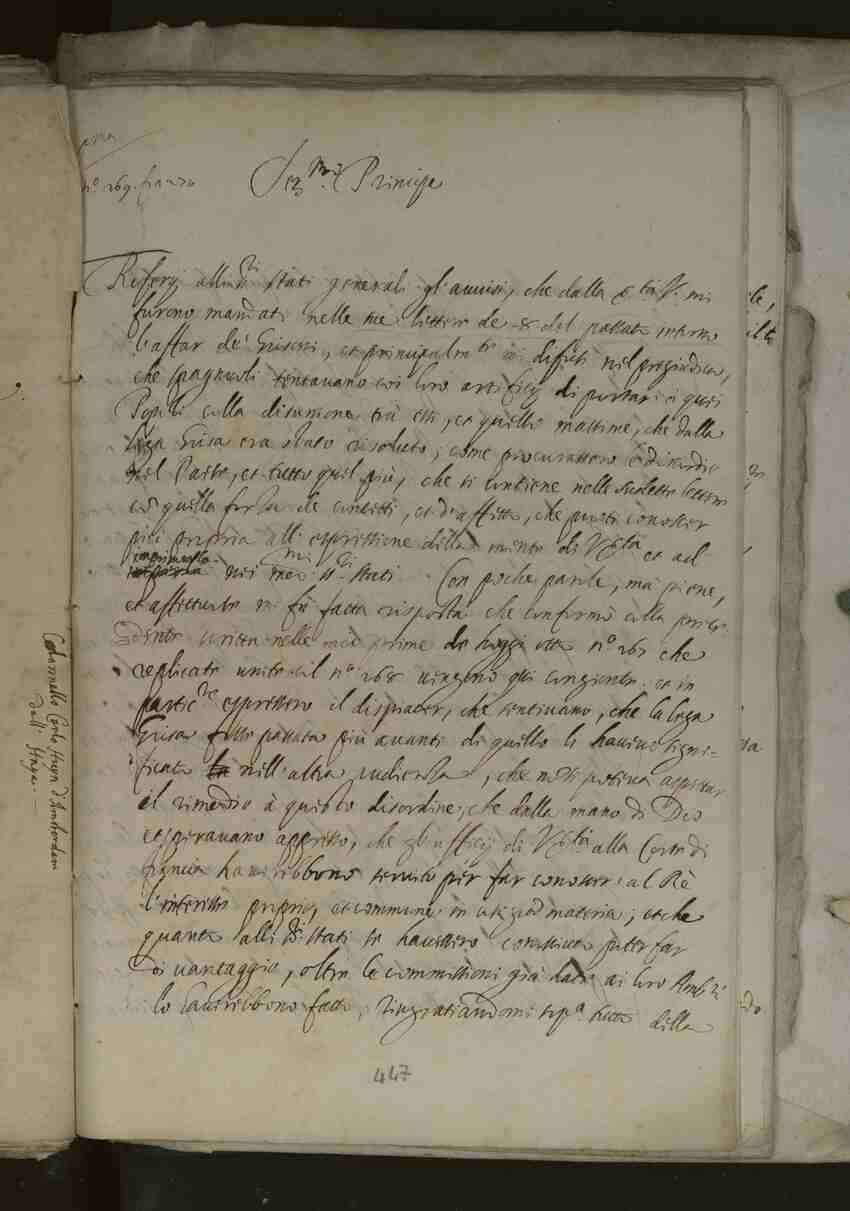 prima
n.o 269. fin 270
Ser.mo Principe
Riferij all'Ill.ri stati generali gl'avvisi, che dalla S.tà V. mi
furono mandati nelle sue lettere de 8 del passato intorno
l'affar de' Grisoni, et principalm.te nel pregiudicio,
che spagnuoli tentavano coi loro artificij di portar à quei
Popoli colla disunione trà essi, et quello massime, che dalla
liga Grisa era stato risoluto, come procurassero
del Paese, et tutto quel più, che si contiene nelle sudette lettere
con quella forza de concetti, et d'affetto, che puoti conoscer
più propria all'espressione della mente di V. S.tà et ad
imprimerlo nei mei Ss.ri stati. Con poche parole, ma piene,
et affettuose mi fù fatta risposta che conforme colla prece-
dente scritta nelle mie prime de hoggi otto n.o 267 che
replicate unite col n.o 268 vengono qui congionte. et in
partic.re espressero il dispiacer, che sentivano, che la lega
Grisa fosse passata più avanti di quello li havevo signi-
ficato nell'altra audienza, che non si poteva aspettar
il rimedio à questo disordine, che dalla mano di Dio
et speravano appresso, che gl'ufficij di V. S.tà alla Corte di
francia haverebbono servito per far conoscer al Rè
l'interesse proprio, et commune in materia; et che
quanto alli Ss.ri stati se havessero conosciuto poter far
di vantaggio, oltre le commissioni già date ai loro Amb.ri
lo haverebbono fatto, ringratiandomi sop.a tutto della
447
Colonnello Carlo d'Amsterdam
dall'Haya.